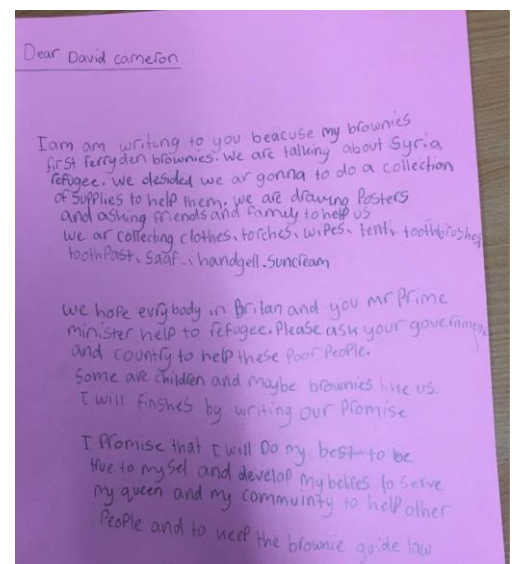 Dear David cameron
I am am writing to you beacuse my brownies
first ferryden brownies. we are talking about Syria
refugee. we desided we ar gonna to do a collection
of supplies to help them. we are drawing Posters
and asking friends and family to help us
we ar collecting clothes, torches, wipes, tents, toothbrushes
toothPast, saaf, handgell. suncream
we hope evrybody in Britan and you mr Prime
minister help to refugee. Please ask your government
and country to help these Poor People.
Some are children and maybe brownies like us.
I will finshes by writing our Promise
I Promise that I will Do my best to be
true to mysel and develop my beliefs to serve
my queen and my commuinty to help other
People and to keep the brownie guide law